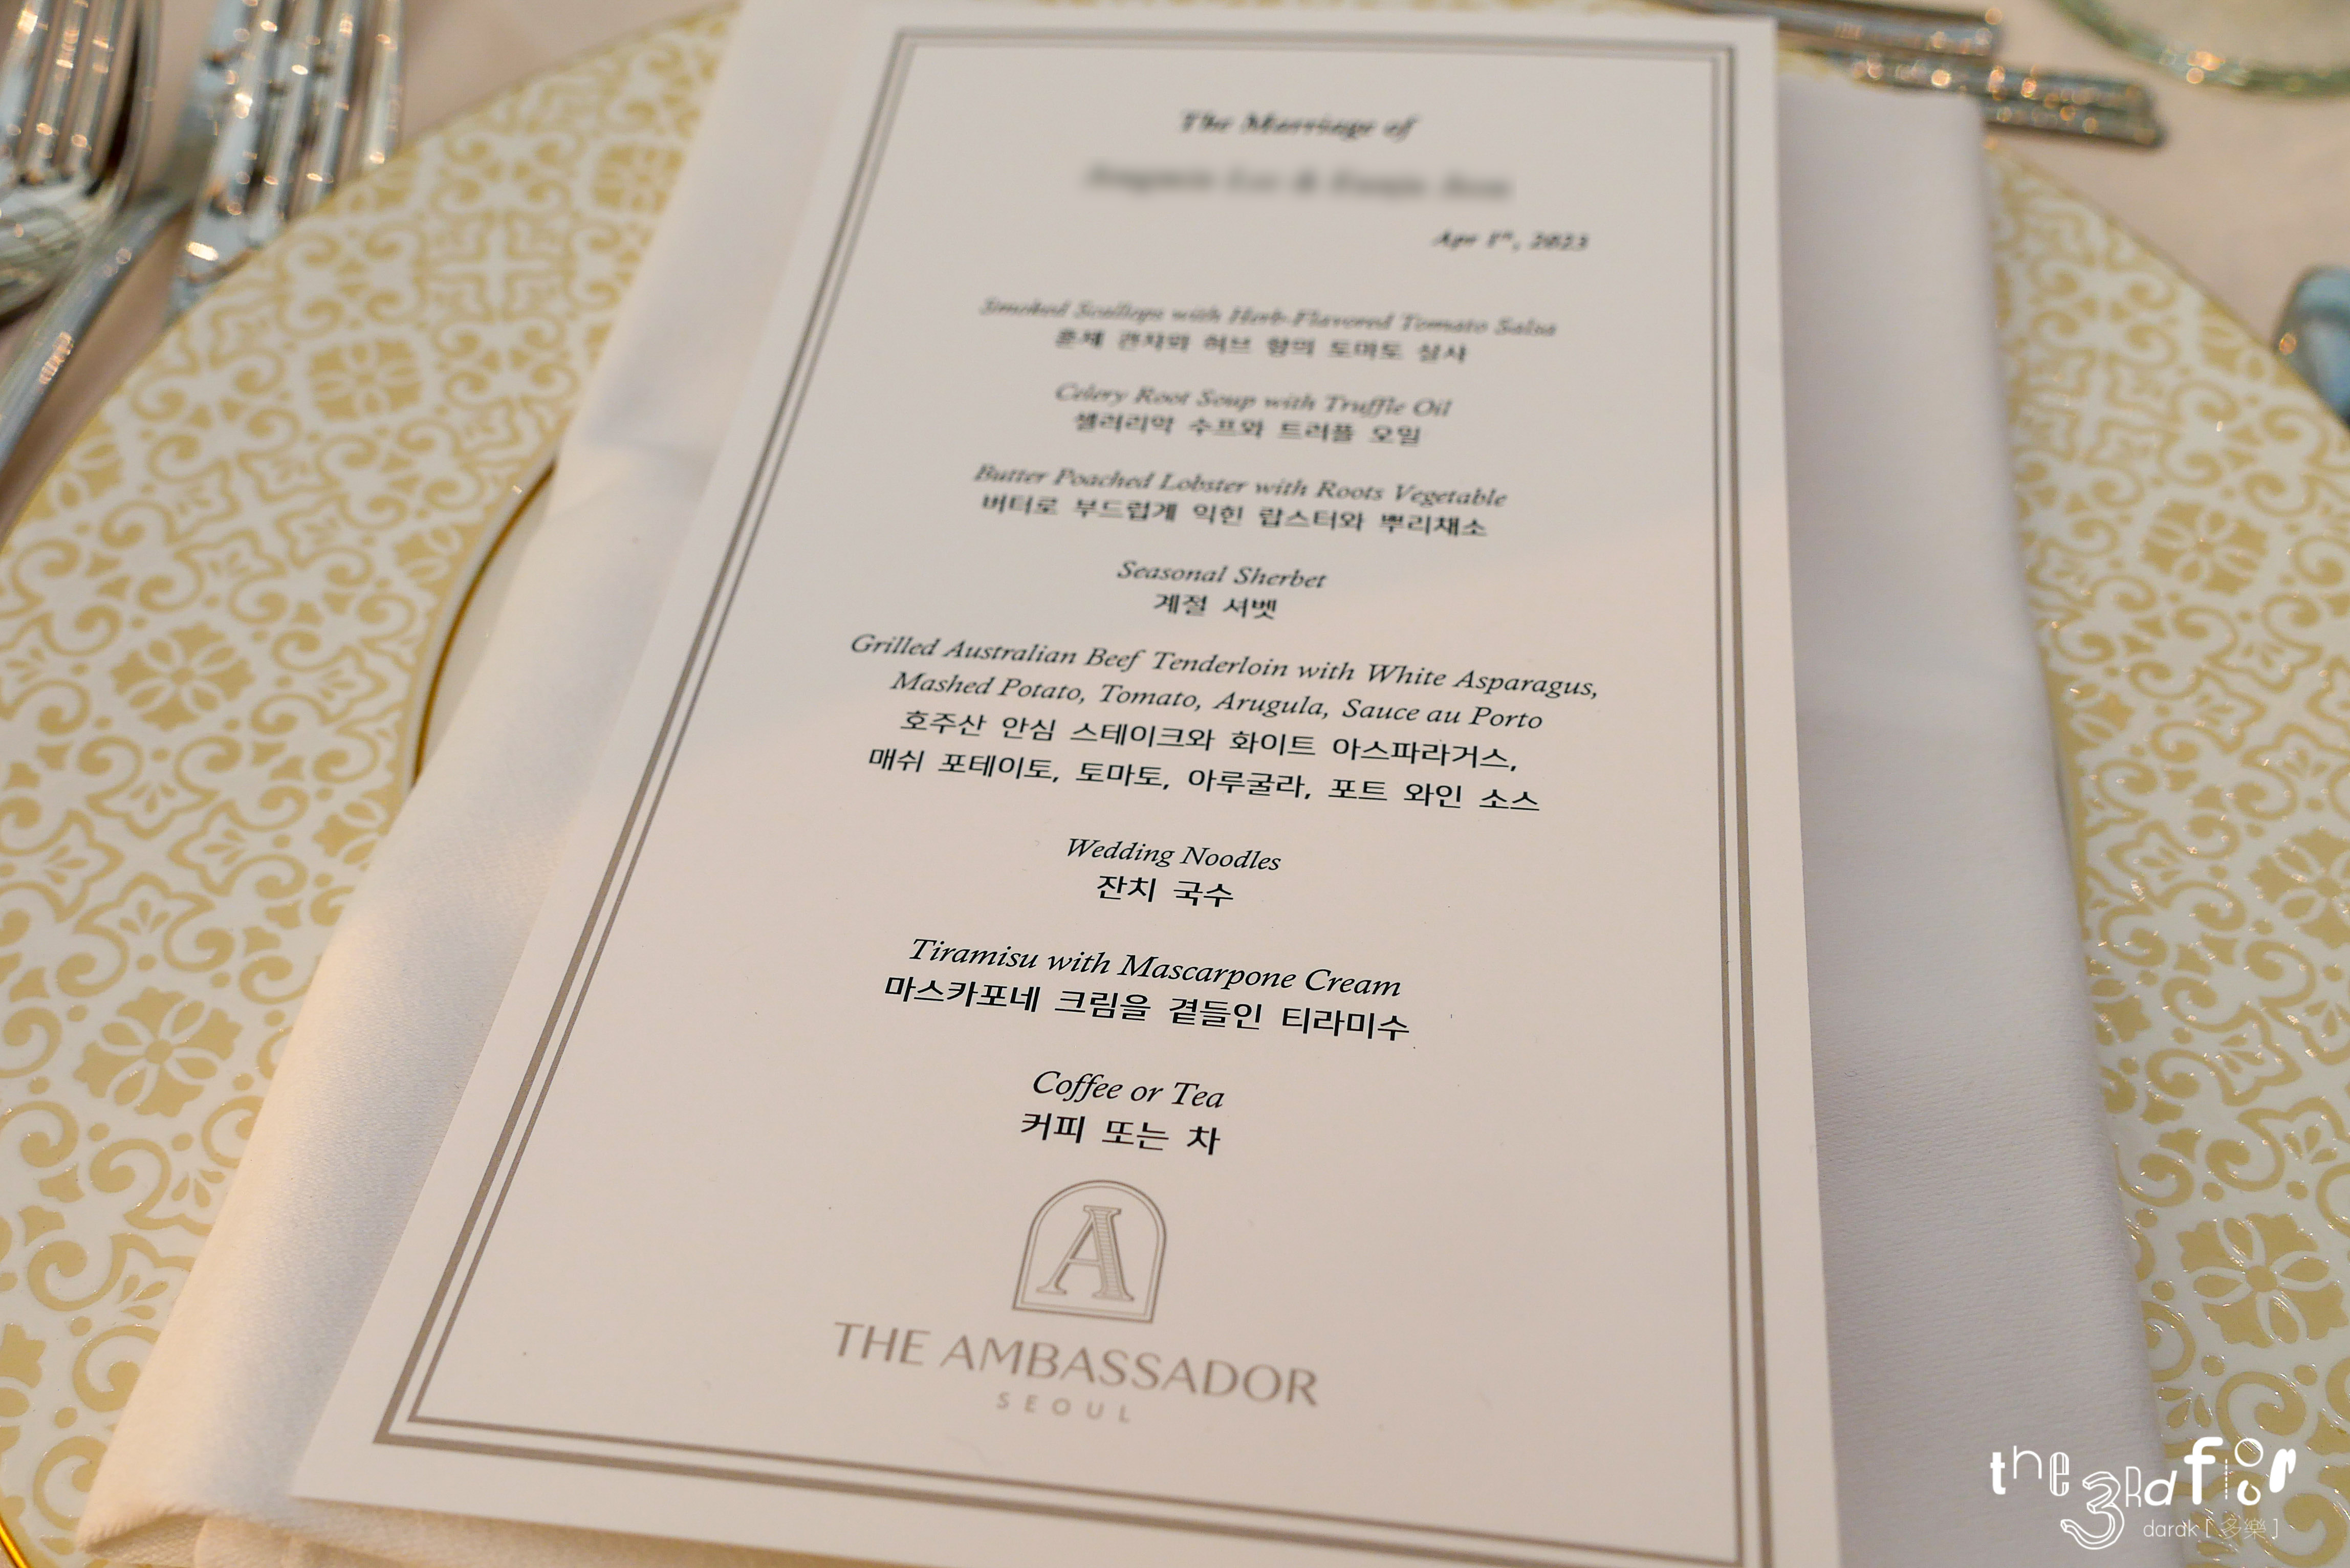 The Marriage of
Apr 1st, 2023
Smoked Scallops with Herb-Flavored Tomato Salsa
훈제 관자와 허브 향의 토마토 살사
Celery Root Soup with Truffle Oil
셀러리악 수프와 트러플 오일
Butter Poached Lobster with Roots Vegetable
버터로 부드럽게 익힌 랍스터와 뿌리채소
Seasonal Sherbet
계절 셔벳
Grilled Australian Beef Tenderloin with White Asparagus,
Mashed Potato, Tomato, Arugula, Sauce au Porto
호주산 안심 스테이크와 화이트 아스파라거스,
매쉬 포테이토, 토마토, 아루굴라, 포트 와인 소스
Wedding Noodles
잔치 국수
Tiramisu with Mascarpone Cream
마스카포네 크림을 곁들인 티라미수
Coffee or Tea
커피 또는 차
A
THE AMBASSADOR
SEOUL
the 3Rd floor
darak [多樂]